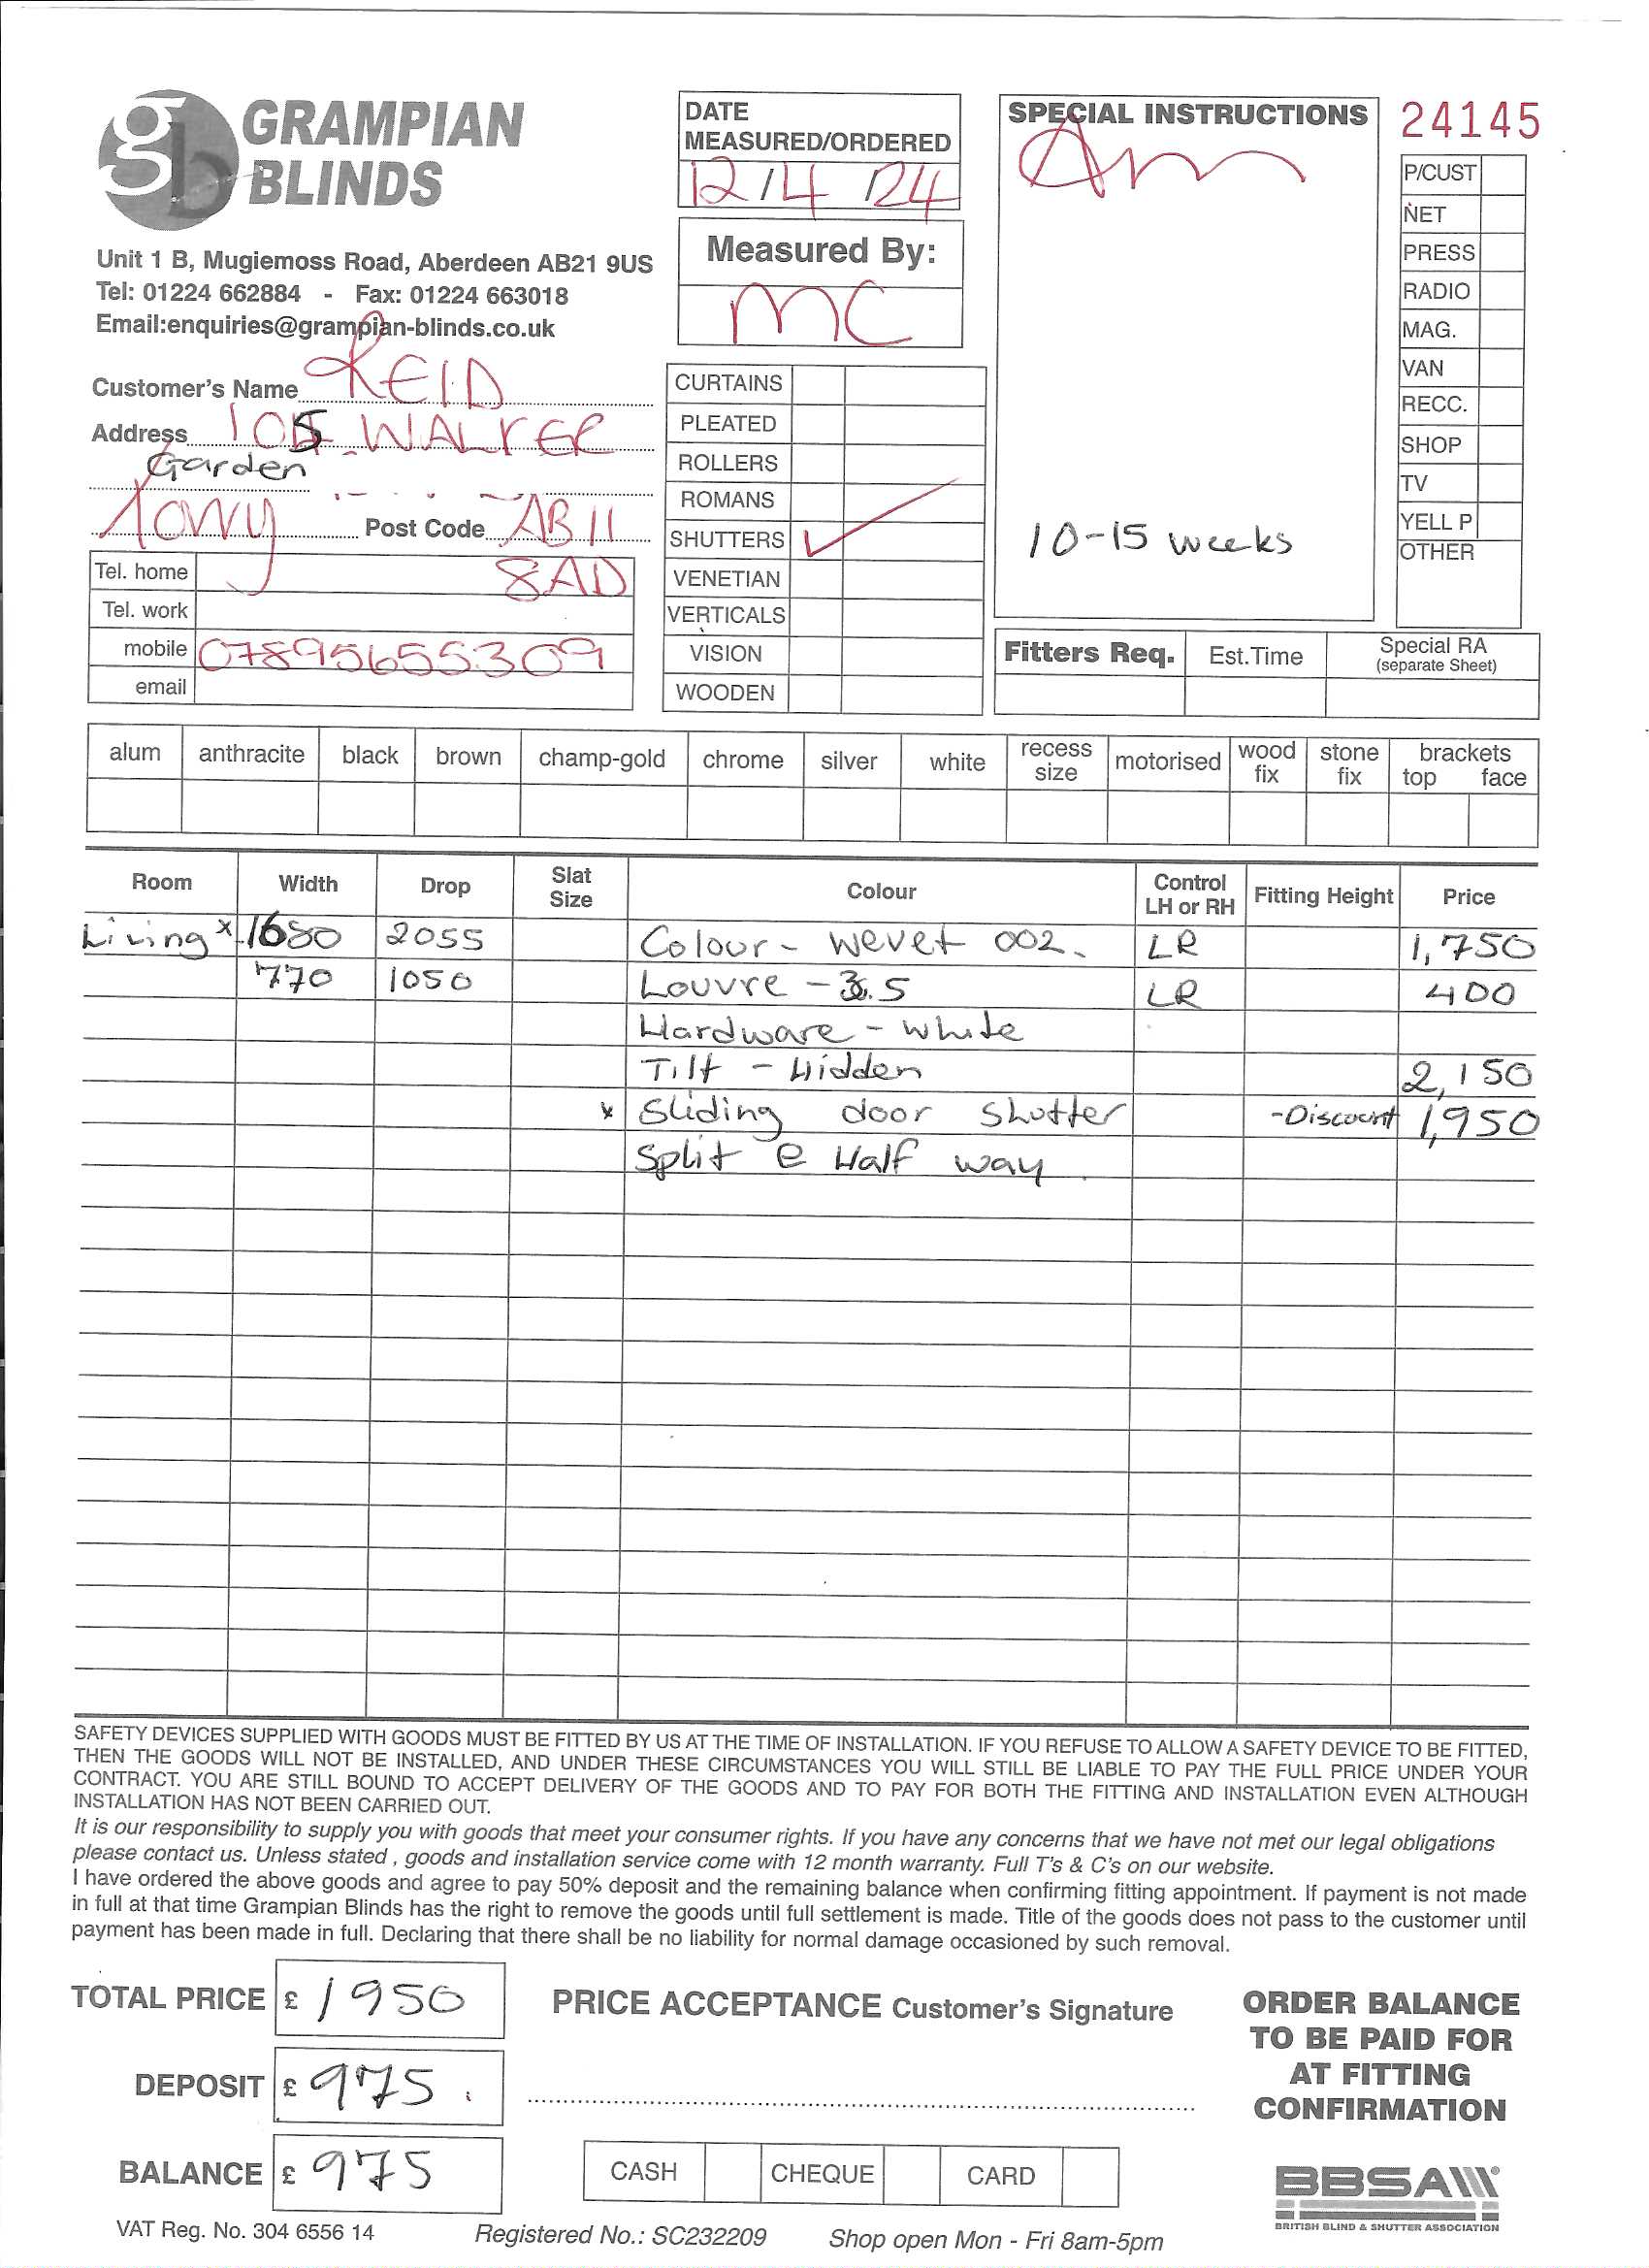 GRAMPIAN
BLINDS
Unit 1 B, Mugiemoss Road, Aberdeen AB21 9US
Tel: 01224 662884 - Fax: 01224 663018
Email:enquiries@grampian-blinds.co.uk
DATE
MEASURED/ORDERED
12/4/24
Measured By:
MC
SPECIAL INSTRUCTIONS
Am
10-15 weeks
24145
P/CUST
NET
PRESS
RADIO
MAG.
VAN
RECC.
SHOP
TV
YELL P
OTHER
Customer's Name REID
Address 105 WALKER
Garden
Torry Post Code AB11
8AD
Tel. home
Tel. work
mobile 07895655309
email
CURTAINS
PLEATED
ROLLERS
ROMANS
SHUTTERS ✓
VENETIAN
VERTICALS
VISION
WOODEN
Fitters Req. Est.Time Special RA
(separate Sheet)
alum anthracite black brown champ-gold chrome silver white recess size motorised wood fix stone fix brackets top face
Room Width Drop Slat Size Colour Control LH or RH Fitting Height Price
Living x 1680 2055 Colour - Wevet 002. LR 1,750
770 1050 Louvre - 3.5 LR 400
Hardware - white
Tilt - Hidden 2,150
x Sliding door Shutter -Discount 1,950
Split @ Half way
SAFETY DEVICES SUPPLIED WITH GOODS MUST BE FITTED BY US AT THE TIME OF INSTALLATION. IF YOU REFUSE TO ALLOW A SAFETY DEVICE TO BE FITTED,
THEN THE GOODS WILL NOT BE INSTALLED, AND UNDER THESE CIRCUMSTANCES YOU WILL STILL BE LIABLE TO PAY THE FULL PRICE UNDER YOUR
CONTRACT. YOU ARE STILL BOUND TO ACCEPT DELIVERY OF THE GOODS AND TO PAY FOR BOTH THE FITTING AND INSTALLATION EVEN ALTHOUGH
INSTALLATION HAS NOT BEEN CARRIED OUT.
It is our responsibility to supply you with goods that meet your consumer rights. If you have any concerns that we have not met our legal obligations
please contact us. Unless stated , goods and installation service come with 12 month warranty. Full T's & C's on our website.
I have ordered the above goods and agree to pay 50% deposit and the remaining balance when confirming fitting appointment. If payment is not made
in full at that time Grampian Blinds has the right to remove the goods until full settlement is made. Title of the goods does not pass to the customer until
payment has been made in full. Declaring that there shall be no liability for normal damage occasioned by such removal.
TOTAL PRICE £ 1950
DEPOSIT £ 975.
BALANCE £ 975
PRICE ACCEPTANCE Customer's Signature
CASH CHEQUE CARD
ORDER BALANCE
TO BE PAID FOR
AT FITTING
CONFIRMATION
BBSA
BRITISH BLIND & SHUTTER ASSOCIATION
VAT Reg. No. 304 6556 14 Registered No.: SC232209 Shop open Mon - Fri 8am-5pm